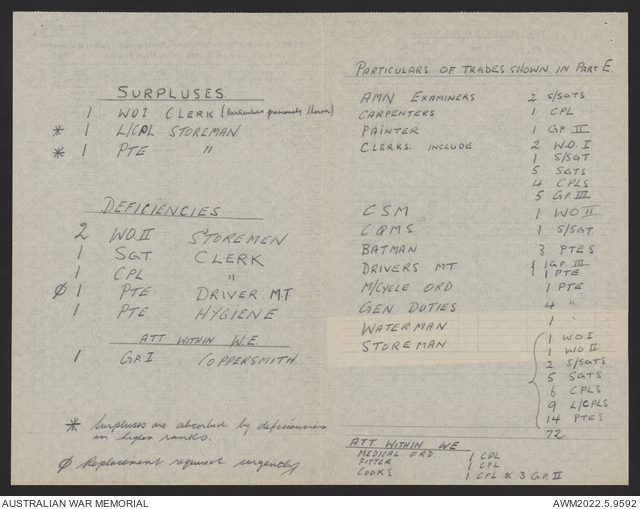 SURPLUSES.
1 WOI CLERK (Particulars previously shown)
* 1 L/CPL STOREMAN.
* 1 PTE "
DEFICIENCIES
2 WO.II STOREMEN
1 SGT CLERK
1 CPL "
Ø 1 PTE DRIVER M.T.
1 PTE HYGIENE
ATT WITHIN W.E.
1 GP.I COPPERSMITH.
* Surpluses are absorbed by deficiencies
in higher ranks.
Ø Replacement required urgently
PARTICULARS OF TRADES SHOWN IN PART E.
AMN EXAMINERS 2 S/SGTS
CARPENTERS 1 CPL
PAINTER 1 GP II
CLERKS INCLUDE 2 W.O. I
1 S/SGT
5 SGTS
4 CPLS
5 GP.III
CSM 1 WO II
CQMS 1 S/SGT
BATMAN 3 PTES
DRIVERS MT { 1 GP III
1 PTE
M/CYCLE ORD 1 PTE
GEN DUTIES 4 "
WATERMAN 1 "
STOREMAN { 1 WO I
1 WO II
2 S/SGTS
5 SGTS
6 CPLS
9 L/CPLS
14 PTES
72
ATT WITHIN WE
MEDICAL ORD. 1 CPL
FITTER 1 CPL
COOKS 1 CPL & 3 GP.II
AUSTRALIAN WAR MEMORIAL
AWM2022.5.9592